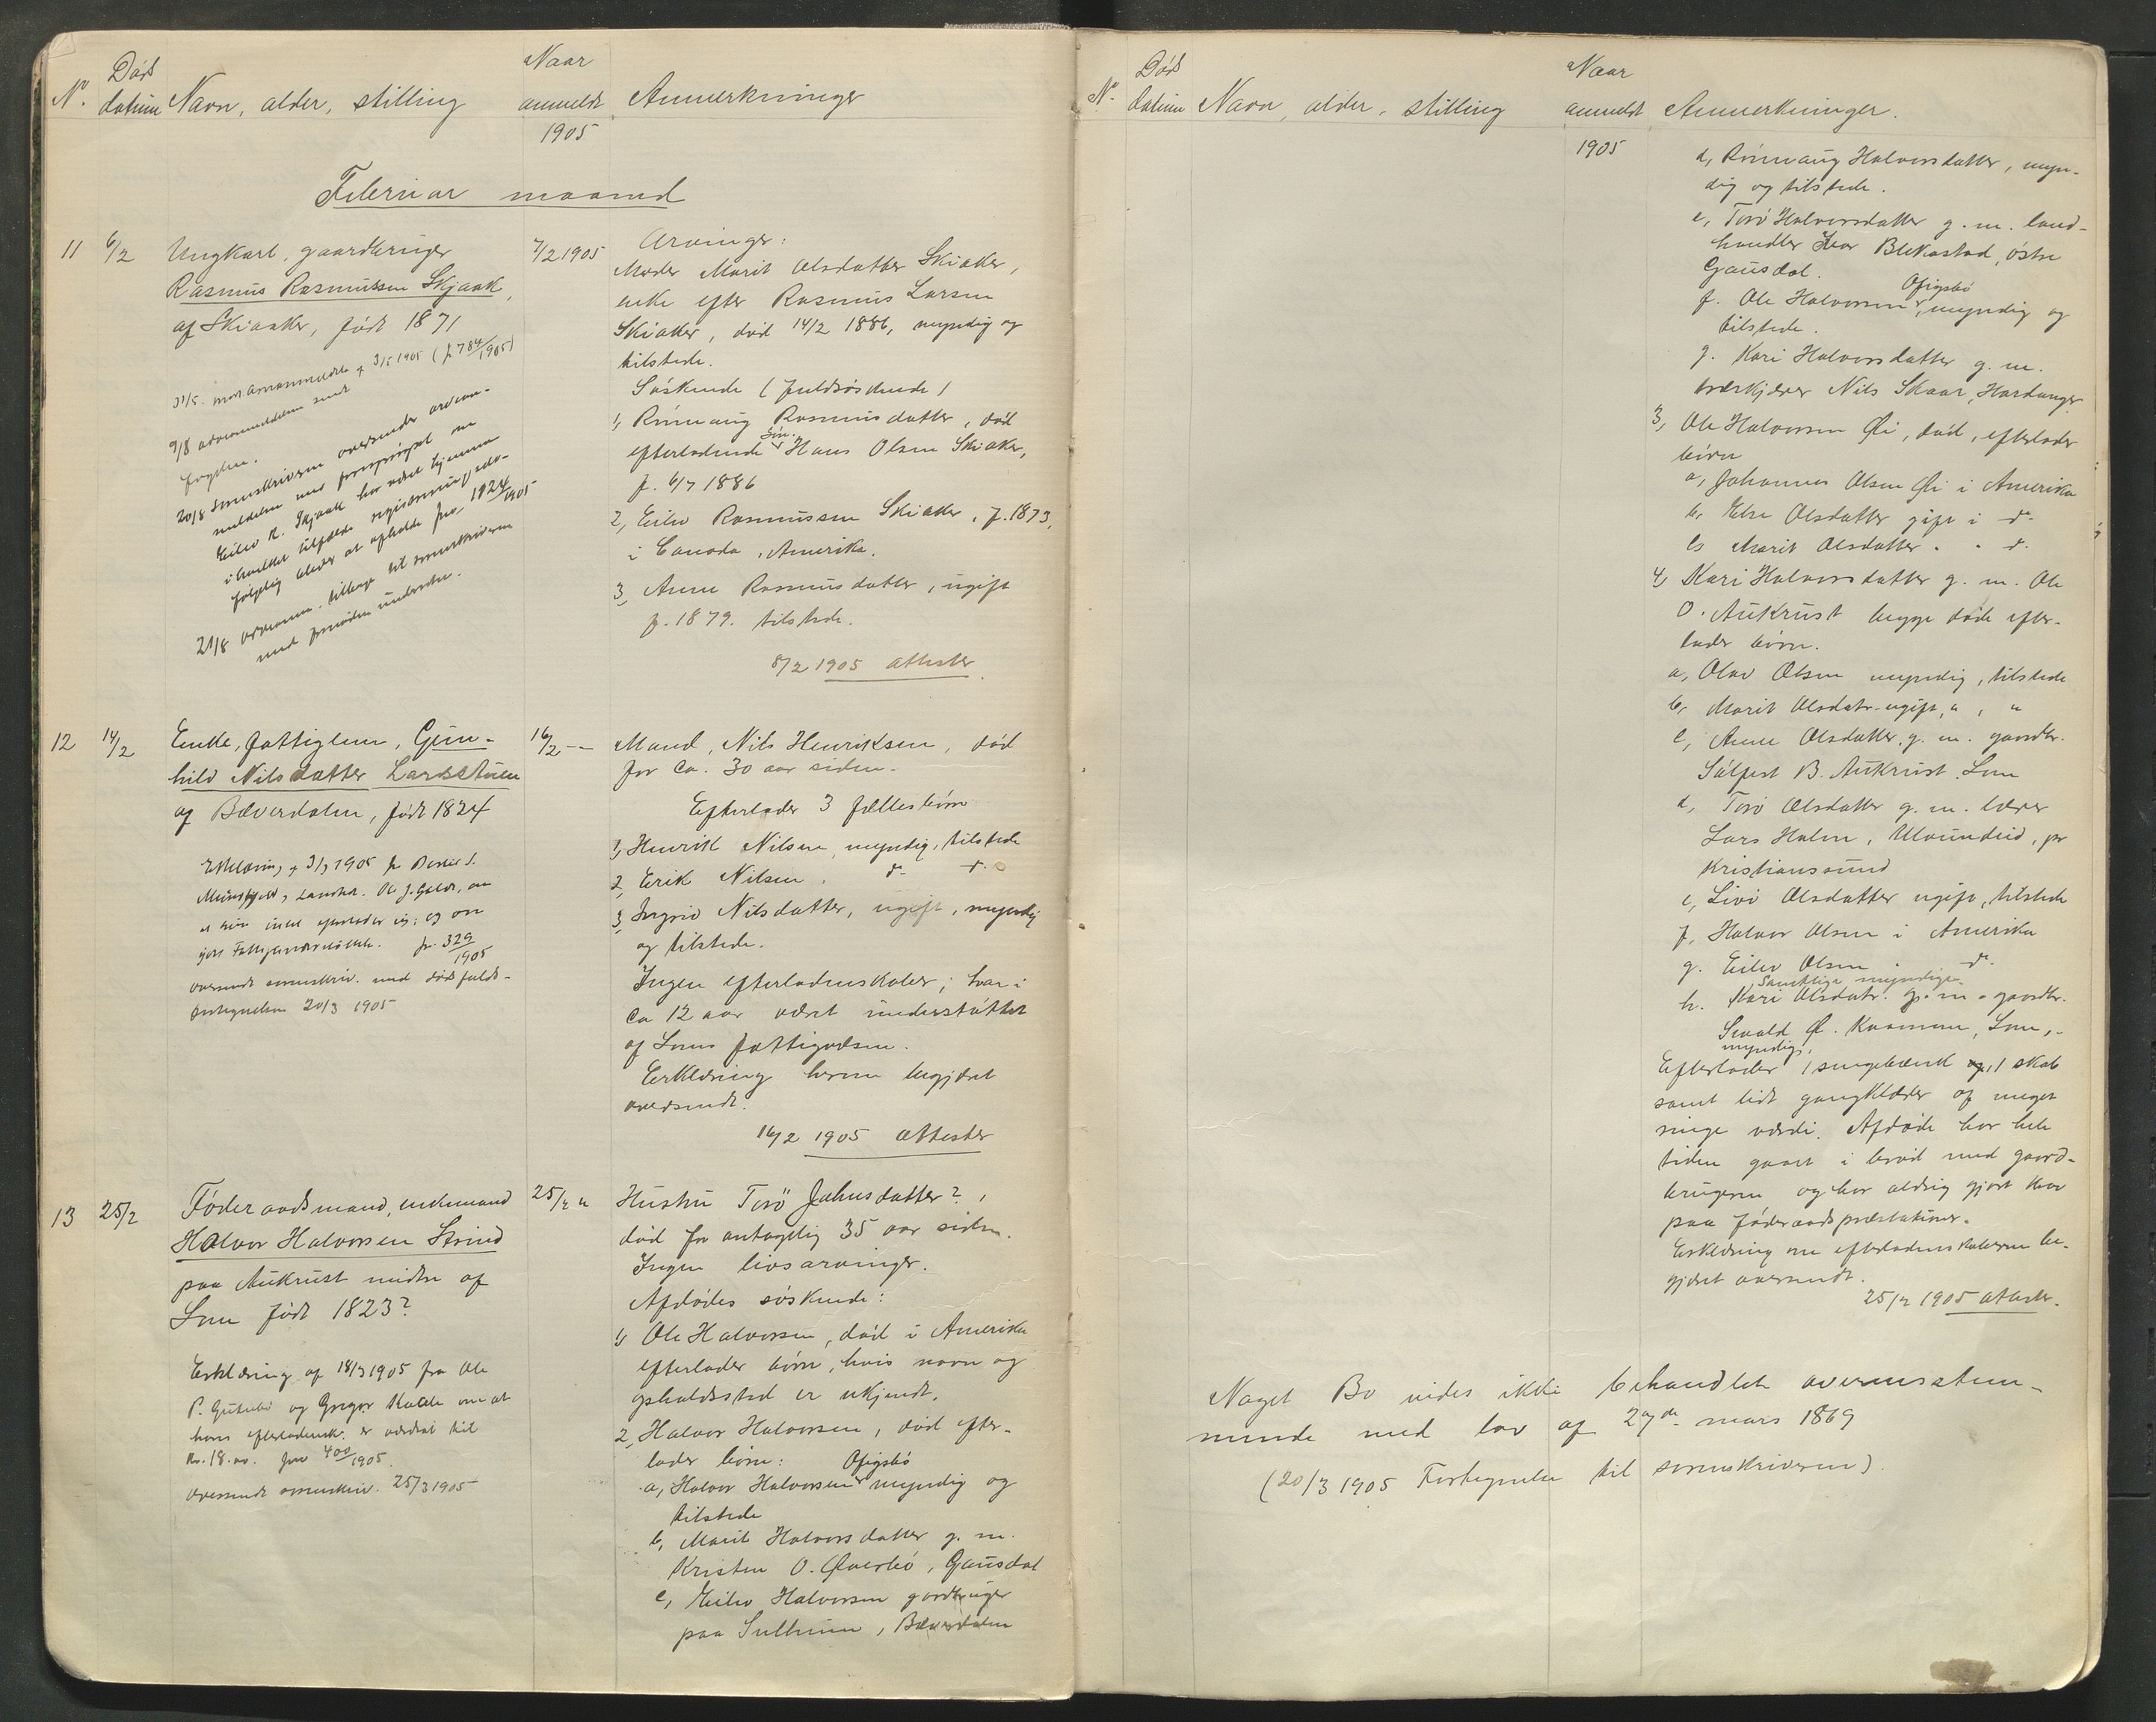 Nº Døds datum Navn, alder, stilling Naar anmeldt 1905 Anmerkninger
Februar maaned
11 6/2 Ungkarl, gaardbruger
Rasmus Rasmussen Skjaak,
af Skiaaker, født 1871
31/5. mor. 3/5 1905 (j 784/1905)
9/8
fogden.
20/8 Sorenskriveren oversender
meldelsen med forespørgsel om
Eilev R. Skjaak har været hjemme
i hvilket tilfælde
følgelig bliver at jno. 1924/1905
21/8 tilbage til sorenskriveren
med
7/2 1905
Arvinger:
Moder Marit Olsdatter Skiaker,
enke efter Rasmus Larsen
Skiaker, død 14/2 1886, myndig og
tilstede.
Søskende (fuldsøskende)
1, Rønnaug Rasmusdatter, død
efterladende søn. Hans Olsen Skiaker,
f. 6/7 1886
2, Eilev Rasmussen Skiaker, f. 1873,
i Canada, Amerika.
3, Anne Rasmusdatter, ugift
f. 1879. tilstede.
8/2 1905 attester
12 14/2 Enke, fattiglem, Gun-
hild Nilsdatter
af Bæverdalen, født 1824
Erklæring af 3/3 1905 fr
Landha. Ole J. Galde, om
at hun intet efterlader sig; og om
jn. 329/1905
oversendt sorenskriv. med dødsfalds-
fortegnelsen 20/3 1905
16/2 --
Mand, Nils Henriksen, død
for ca. 30 aar siden.
Efterlader 3 fællesbørn
1, Henrik Nilsen, myndig, tilstede
2, Erik Nilsen, do do
3, Ingrid Nilsdatter, ugift, myndig
og tilstede.
Ingen efterladenskaber; har i
ca 12 aar været understøttet
af Loms fattigvæsen.
Erklæring herom begjæret
oversendt.
16/2 1905 attester
13 25/2 Føderaadsmand, enkemand
Halvor Halvorsen Strind
paa Aukrust midtre af
Lom født 1823?
Erklæring af 18/3 1905 fra Ole
P. og Gregor Kvaale om at
hans efterladensk. er værdsat til
Kr. 18.00. jno 400/1905.
oversendt sorenskriv. 25/3 1905
25/2 "
Hustru Torø Johnsdatter?,
død for antagelig 35 aar siden.
Ingen livsarvinger.
Afdødes søskende:
1, Ole Halvorsen, død i Amerika
efterlader børn, hvis navn og
opholdssted er ukjendt.
2, Halvor Halvorsen, død efter-
lader børn:
a, Halvor Halvorsen Ofigsbø myndig og
tilstede
b, Marit Halvorsdatter g. m.
Kristen O. Øverbø, Gausdal
c, Eilev Halvorsen gardbruger
paa Sulheim, Bæverdalen
Nº Døds datum Navn, alder, stilling Naar anmeldt 1905 Anmerkninger.
d, Rønnaug Halvorsdatter, myn-
dig og tilstede.
e, Torø Halvorsdatter g. m. land-
handler Iver Blekastad, østre
Gausdal.
f. Ole Halvorsen Ofigsbø, myndig og
tilstede.
g. Kari Halvorsdatter g. m.
Nils Skaar, Hardanger
3, Ole Halvorsen Øi, død, efterlader
børn
a, Johannes Olsen Øi i Amerika
b, Else Olsdatter gift i do
c, Marit Olsdatter " " do
4, Kari Halvorsdatter g. m. Ole
O. Aukrust begge døde efter-
lader børn.
a, Olav Olsen myndig, tilstede
b, Marit Olsdatr. ugift, " , "
c, Anne Olsdatter, g. m. gaardbr.
Sålfest B. Aukrust, Lom
d, Torø Olsdatter g. m. lærer
Lars Holm, Ulvundeid, pr
Kristiansund
e, Livi Olsdatter ugift, tilstede
f, Halvor Olsen i Amerika
g. Eilev Olsen " do
Samtlige myndige.
h. Kari Olsdatr. g. m. gaardbr.
Sevald Ø. Kvamme, Lom,
myndig.
Efterlader 1 sengebænk og 1 skab
samt lidt gangklæder af meget
ringe værdi. Afdøde har hele
tiden gaaet i brød med gaard-
brugeren og har aldrig gjort krav
paa føderaadspræstationer.
Erklæring om efterladenskaberne be-
gjæret oversendt.
25/2 1905 attester.
Noget Bo vides ikke behandlet overensstem-
mende med lov af 29de mars 1869
(20/3 1905 Fortegnelse til sorenskriveren).